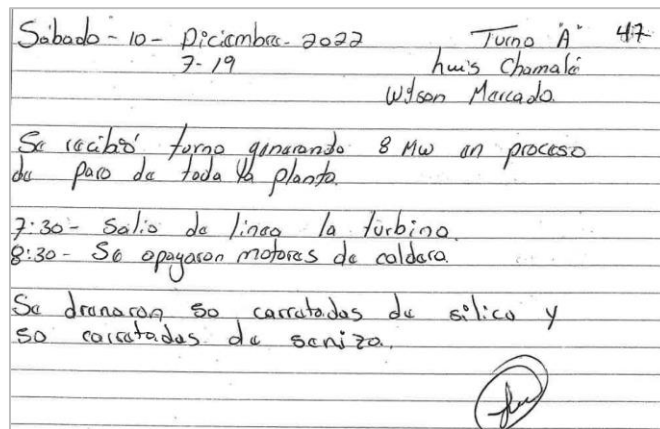 Sábado - 10 - Diciembre - 2022 Turno "A" 47
7-19 Luis Chamalé
Wilson Marcado.
Se recibió turno generando 8 Mw en proceso
de paro de toda la planta.
7:30 - Salio de linea la turbina.
8:30 - Se apagaron motores de caldera.
Se drenaron 50 carretadas de silica y
50 carretadas de seniza.